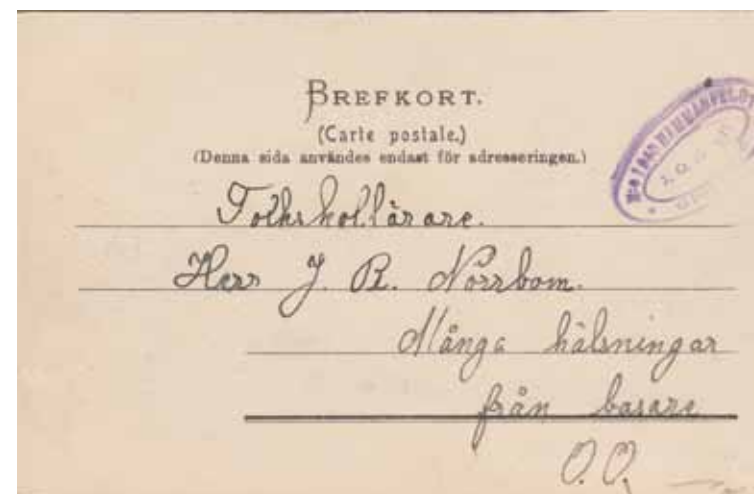 BREFKORT.
(Carte postale.)
(Denna sida användes endast för adresseringen.)
Folkskollärare.
Herr J. R. Norrbom.
Många hälsningar
från basare
O.O.